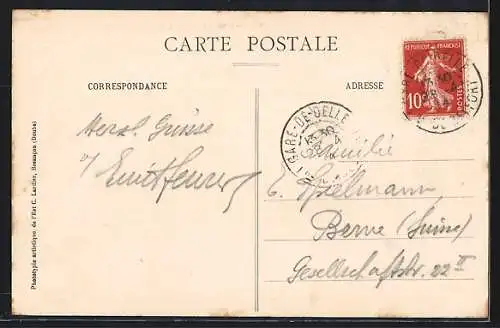 CARTE POSTALE
CORRESPONDANCE
ADRESSE
REPUBLIQUE FRANÇAISE
10
POSTES
GARE-DE-DELLE
BELFORT
Herzl. Grüsse
Familie
E. Spielmann
Berne (Suisse)
Gesellschaftstr. 22 II
Phototypie artistique de l'Est C. Lardier, Besançon (Doubs)